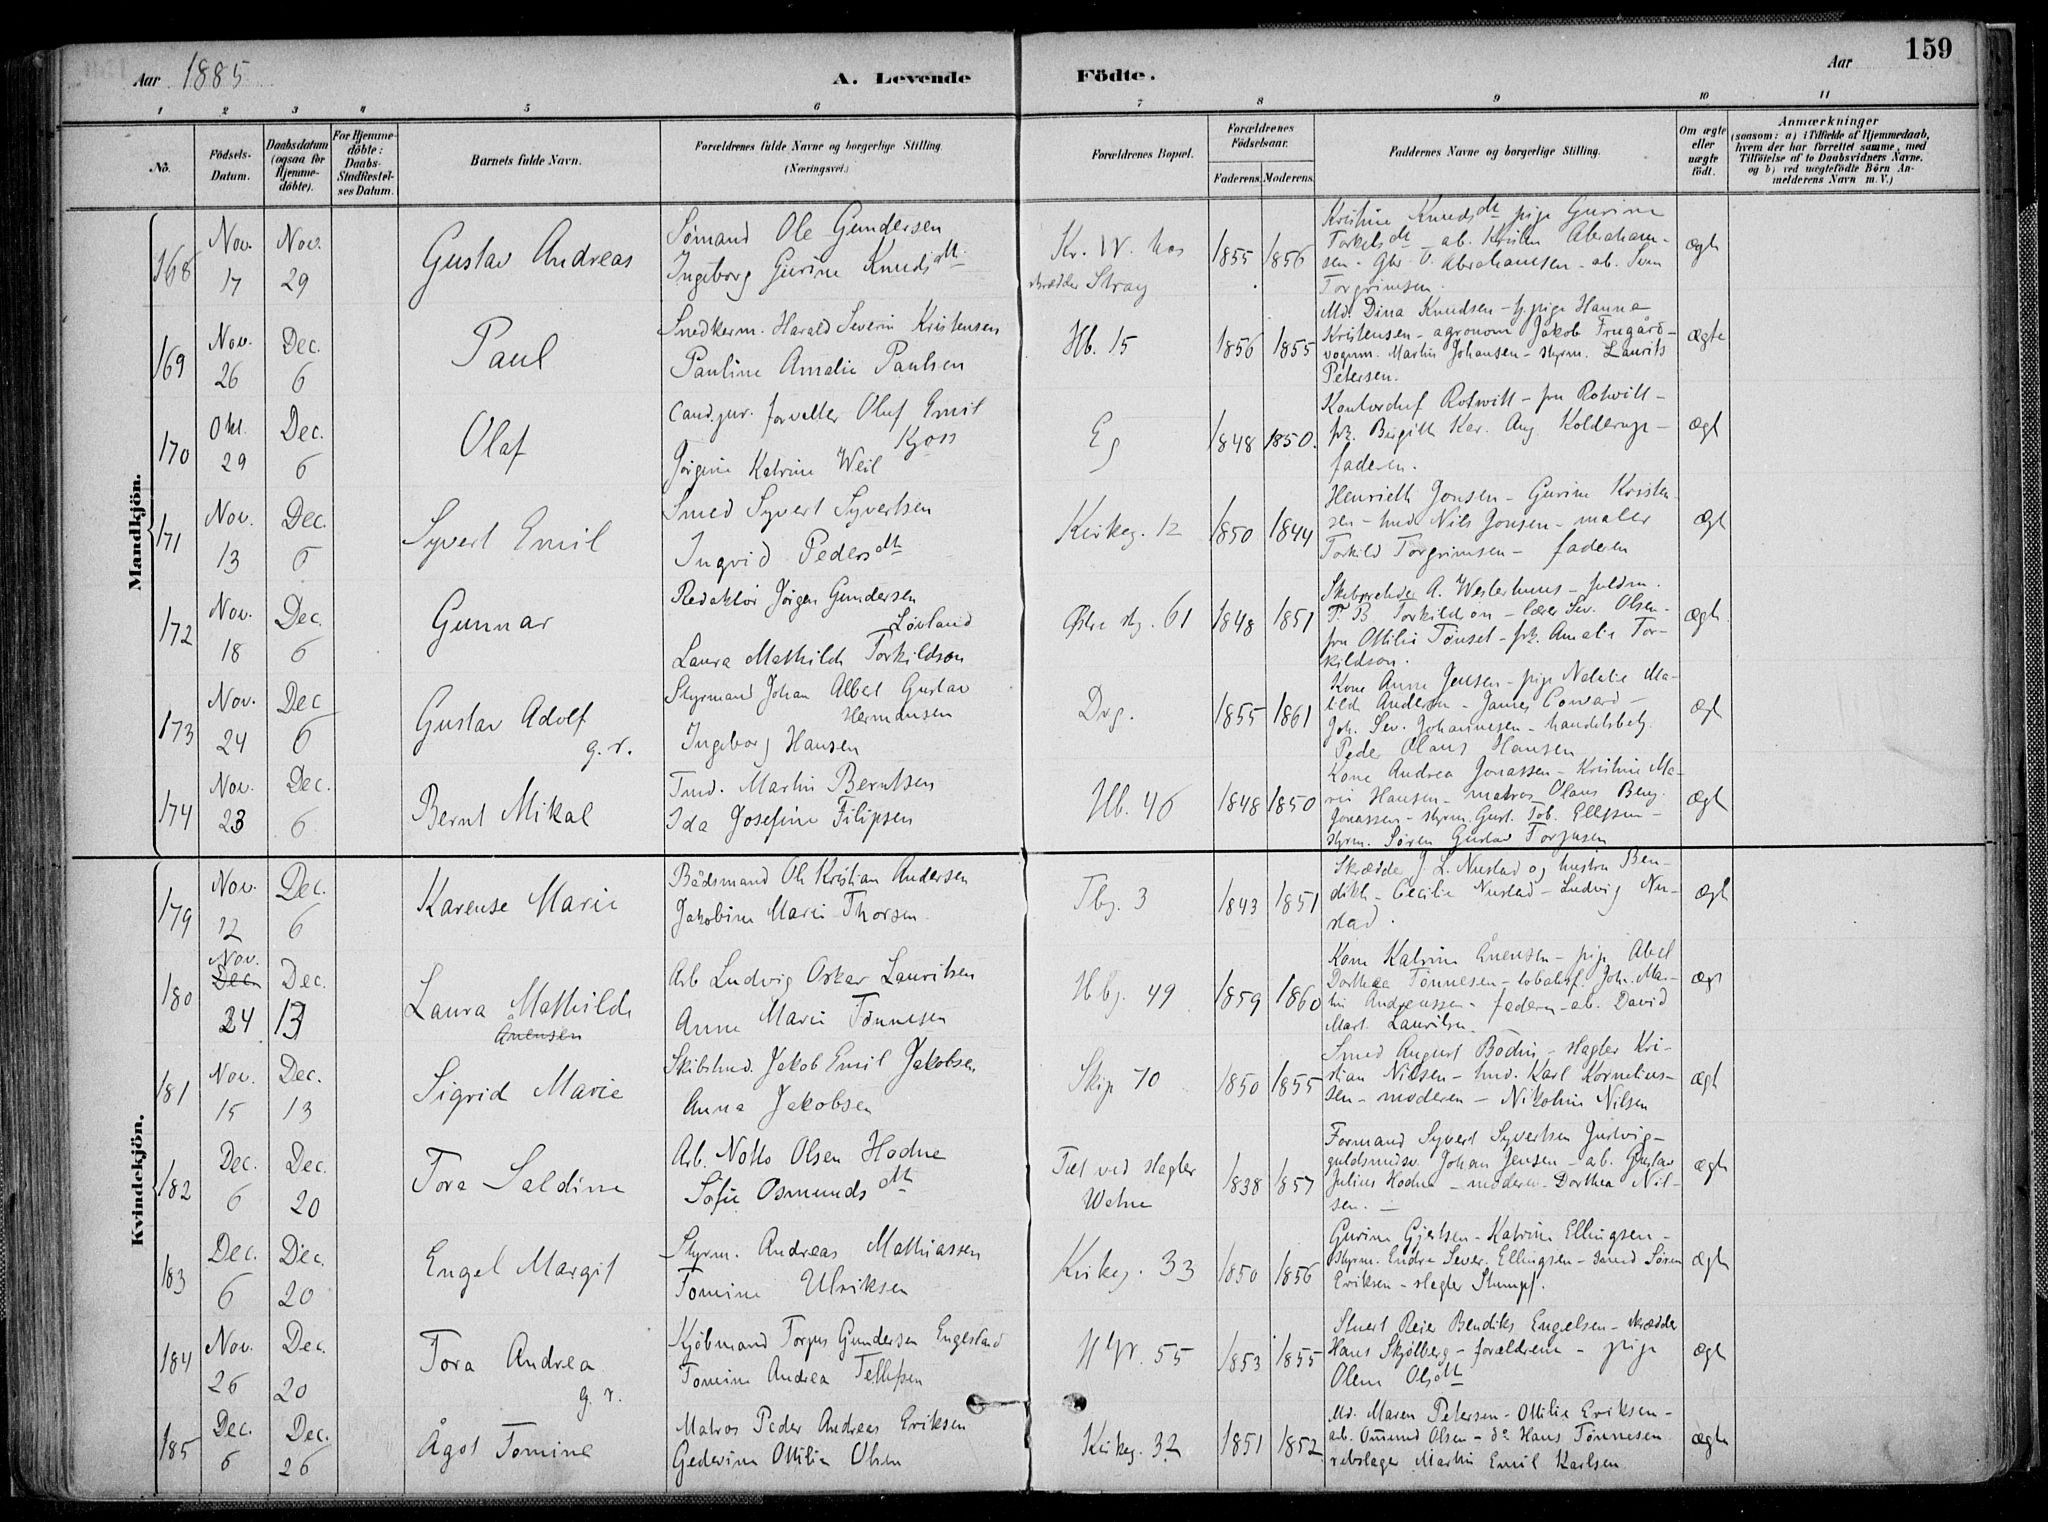 Aar 1885
A. Levende
Födte.
Aar
159
1 2 3 4 5 6 7 8 9 10 11
No.
Födsels-Datum.
Daabsdatum (ogsaa for Hjemmedöbte).
For Hjemmedöbte: Daabs-Stadfæstelses Datum.
Barnets fulde Navn.
Forældrenes fulde Navne og borgerlige Stilling. (Næringsvei.)
Forældrenes Bopæl.
Forældrenes Födselsaar.
Faderens. Moderens.
Faddernes Navne og borgerlige Stilling.
Om ægte eller uægte födt.
Anmærkninger
(saasom: a) i Tilfælde af Hjemmedaab, hvem der har forrettet samme, med Tilföielse af to Daabsvidners Navne, og b) ved uægtefödte Börn Anmelderens Navn m. V.)
Mandkjön.
168 Nov. 17 Nov. 29
Gustav Andreas
Sømand Ole Gundersen
Ingeborg Gurine Knudsdtr
Kr. W. hos
skrædder Stray
1855 1856
Kristine Knudsdtr pige Gurine
Torkelsdtr ab. Kristen Abraham-
sen - Abrahamsen - ab. Sven
Torgrimsen.
ægt
169 Nov. 26 Dec. 6
Paul
Snedkerm. Harald Severin Kristensen
Pauline Amalie Paulsen
Hb. 15
1856 1855
Md. Dina Knudsen - pige Hanna
Kristensen - agronom Jakob Frugård -
vognm. Martin Johansen - styrm. Laurits
Petersen.
ægte
170 Okt. 29 Dec. 6
Olaf
Cand. jur. forvalter Oluf Emil
Kjoss
Jörgine Katrine Weil
Eg
1848 1850.
Kontorchef Rotwitt - fru Rotwitt -
frk. Birgitte Kar. Aug Kolderup -
faderen.
ægt
171 Nov. 13 Dec. 6
Syvert Emil
Smed Syvert Syvertsen
Ingvid Pedersdtr
Kirkeg. 12
1850 1844
Henriette Jonsen - Gurine Kristen-
sen - tmd. Nils Jonsen - maler
Torkild Torgrimsen - faderen
ægt
172 Nov. 18 Dec. 6
Gunnar
Redaktör Jörgen Gundersen
Lövland
Laura Mathilde Torkildson
Østre stg. 61
1848 1851
Skibsreder A. Westerhuus - fuldm.
T. B. Torkildson - lærer Sev. Olsen -
fru Ottilie Tönset - frk. Amalie Tor-
kildson.
ægt
173 Nov. 24 Dec 6
Gustav Adolf
g. r.
Styrmand Johan Albert Gustav
Hermansen
Ingeborg Hansen
Drg.
1855 1861
Kone Anne Jensen - pige Natalie Ma-
tilde Andersen - James Conward -
Joh. Sev. Johannesen - handelsbetj.
Peder Olaus Hansen
ægt
174 Nov. 23 Dec. 6
Bernt Mikal
Tmd. Martin Berntsen
Ida Josefine Filipsen
Hb. 46
1848 1850
Kone Andrea Jonassen - Kristine Ma-
rie Hansen - matros Olaus Benj.
Jonassen - styrm. Gust. Tob. Ellefsen -
styrm. Sören Gustav Torjusen
ægt
Kvindekjön.
179 Nov. 12 Dec. 6
Karense Marie
Bådsmand Ole Kristian Andersen
Jakobine Marie Thorsen
Tbg. 3
1843 1851
Skrædder J. L. Nustad og hustru Ben-
dikte - Cecilie Nustad - Ludvig Nu-
stad.
ægt
180 Nov. Dec. 24 Dec. 13
Laura Mathilde
Anensen
Arb Ludvig Oskar Lauritsen
Anne Marie Tönnesen
Hbg. 49
1859 1860
Kone Katrine Ånensen - pige Abel
Dorthea Tönnesen - Joh. Ma-
tin Andreassen - faderen - ab. David
Mart. Lauritsen.
ægt
181 Nov. 15 Dec. 13
Sigrid Marie
Skibstmd. Jakob Emil Jakobsen
Anna Jakobsen
Skip 70
1850 1855
Smed August Bodin - slagter Kri-
stian Nilsen - tmd. Karl Kornelius-
sen - moderen - Nikoline Nilsen
ægt
182 Dec. 6 Dec. 20
Tora Saldine
Arb. Notto Olsen Hodne
Sofie Osmundsdtr
Tæt ved slagter
Wehne
1838 1857
Formand Syvert Syvertsen Justvig -
guldsmedsv. Johan Jensen - ab. Gustav
Julius Hodne - moderen - Dorthea Nil-
sen. -
ægt
183 Dec. 6 Dec. 20
Engel Margit
Styrm. Andreas Mathiassen
Tomine Ulriksen
Kirkeg. 33
1850 1856
Gurine Gjertsen - Katrine Ellingsen -
Styrm. Endre Sever. Ellingsen - smed Sören
Eriksen - slagter Stumpf.
ægt
184 Nov. 26 Dec. 20
Tora Andrea
g. r.
Kjöbmand Torjus Gundersen Engestad
Tomine Andrea Tellefsen
1853 1855
Stuert Reier Bendiks Engelsen - skrædder
Hans Skjölberg - forældrene - pige
Olene Olsdtr
ægt
185 Dec. 6 Dec. 26
Ågot Tomine
Matros Peder Andreas Eriksen
Gedevine Ottilie Olsen
Kirkeg. 32
1851 1852
Md. Maren Petersen - Ottilie Eriksen -
arb. Omund Olsen - do Hans Tönnesen
rebslager Martin Emil Karlsen
ægte